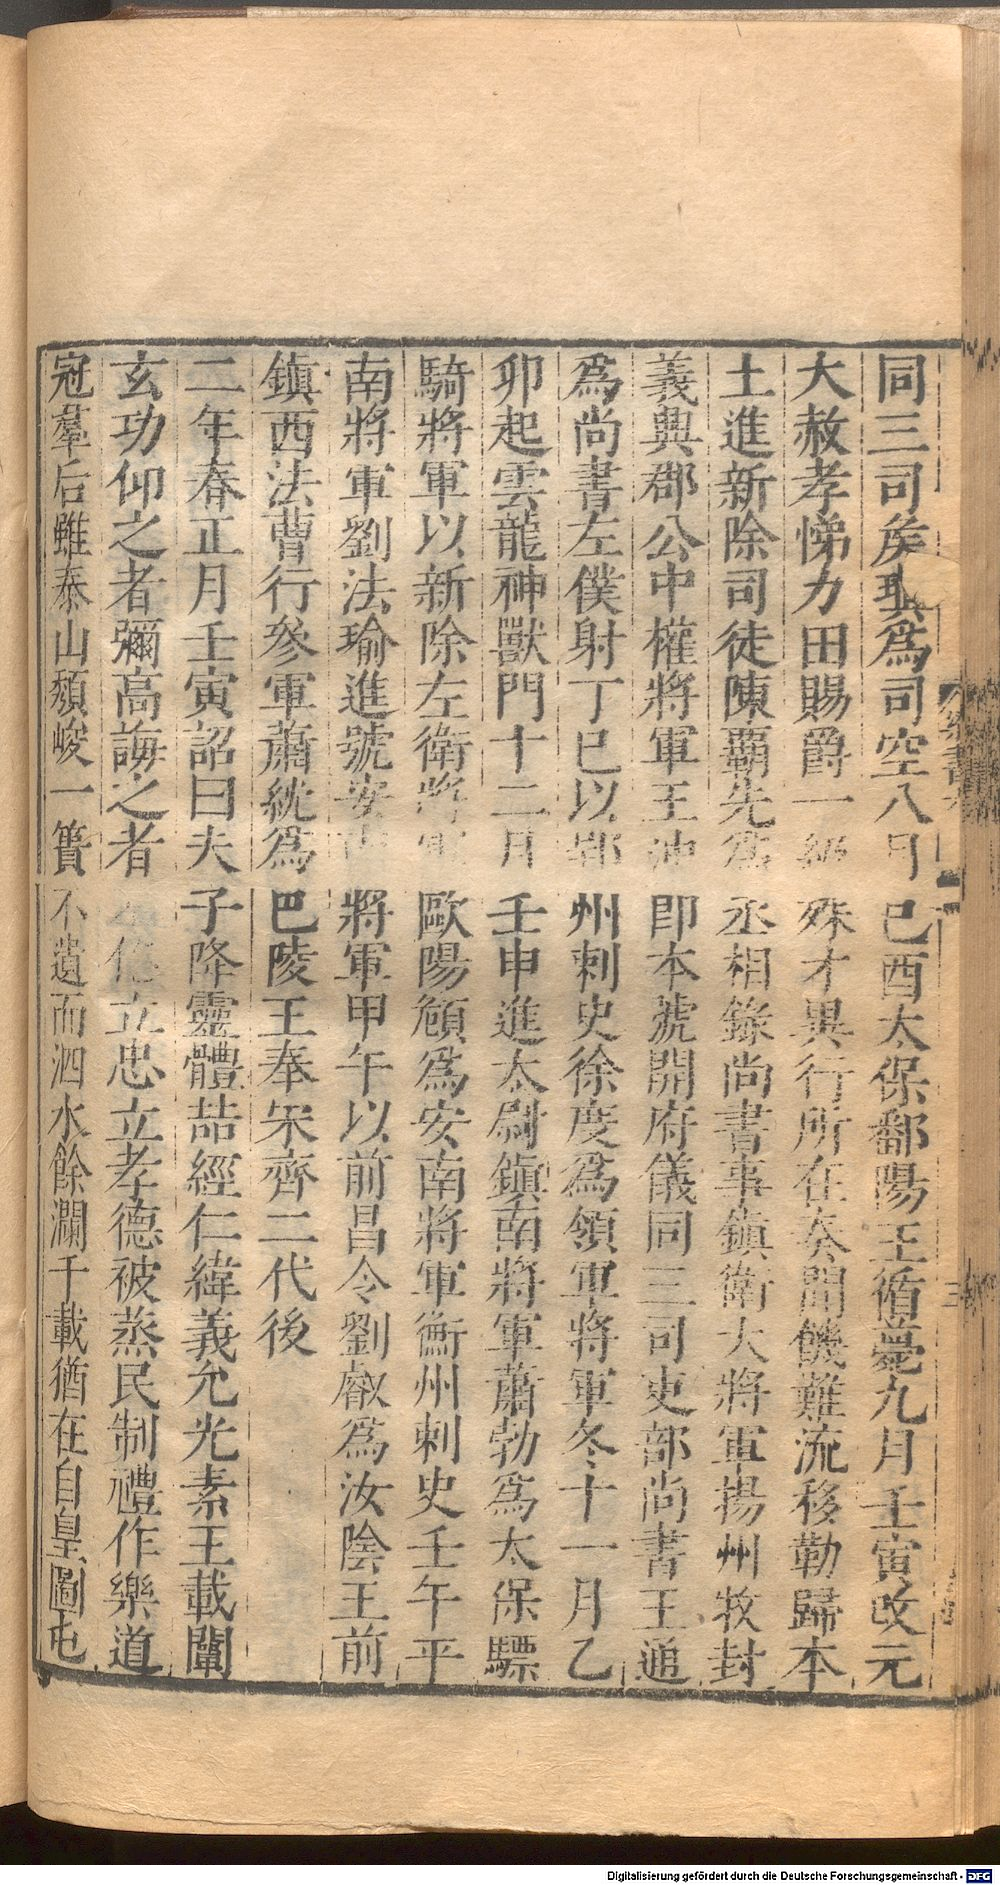 同三司侯瑱為司空八月己酉太保鄱陽王循薨九月壬寅改元
大赦孝悌力田賜爵一級殊才異行所在奏聞饑難流移勒歸本
土進新除司徒陳霸先為丞相錄尚書事鎮衛大將軍揚州牧封
義興郡公中權將軍王沖即本號開府儀同三司吏部尚書王通
為尚書左僕射丁巳以郢州刺史徐度為領軍將軍冬十一月乙
卯起雲龍神獸門十二月壬申進太尉鎮南將軍蕭勃為太保驃
騎將軍以新除左衛將軍歐陽頠為安南將軍衡州刺史壬午平
南將軍劉法瑜進號安南將軍甲午以前昌令劉叡為汝陰王前
鎮西法曹行參軍蕭紞為巴陵王奉宋齊二代後
二年春正月壬寅詔曰夫子降靈體喆經仁緯義允光素王載闡
玄功仰之者彌高誨之者不倦立忠立孝德被蒸民制禮作樂道
冠羣后雖泰山頹峻一簣不遺而泗水餘瀾千載猶在自皇圖屯
Digitalisierung gefördert durch die Deutsche Forschungsgemeinschaft - DFG